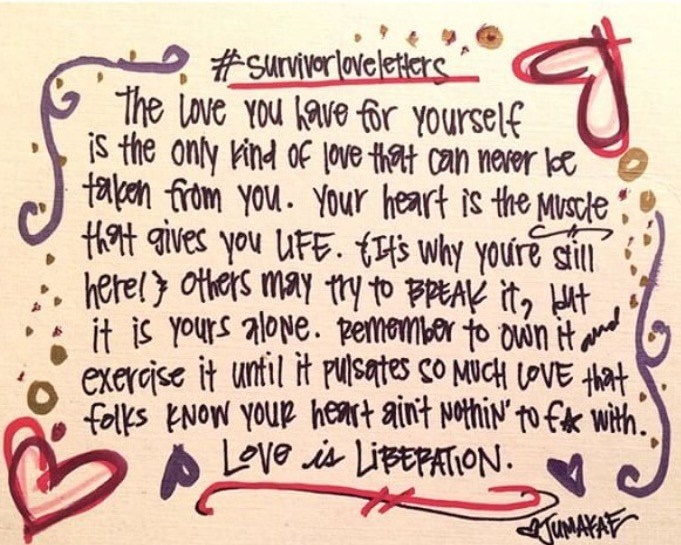 #survivorloveletters
The love you have for yourself
is the only kind of love that can never be
taken from you. Your heart is the muscle
that gives you LIFE. {It's why you're still
here!} Others may try to BREAK it, but
it is yours alone. Remember to own it and
exercise it until it pulsates so MUCH LOVE that
folks KNOW YOUR heart ain't NOTHIN' to f☆k with.
LOVE is LIBERATION.
JUMAKAE